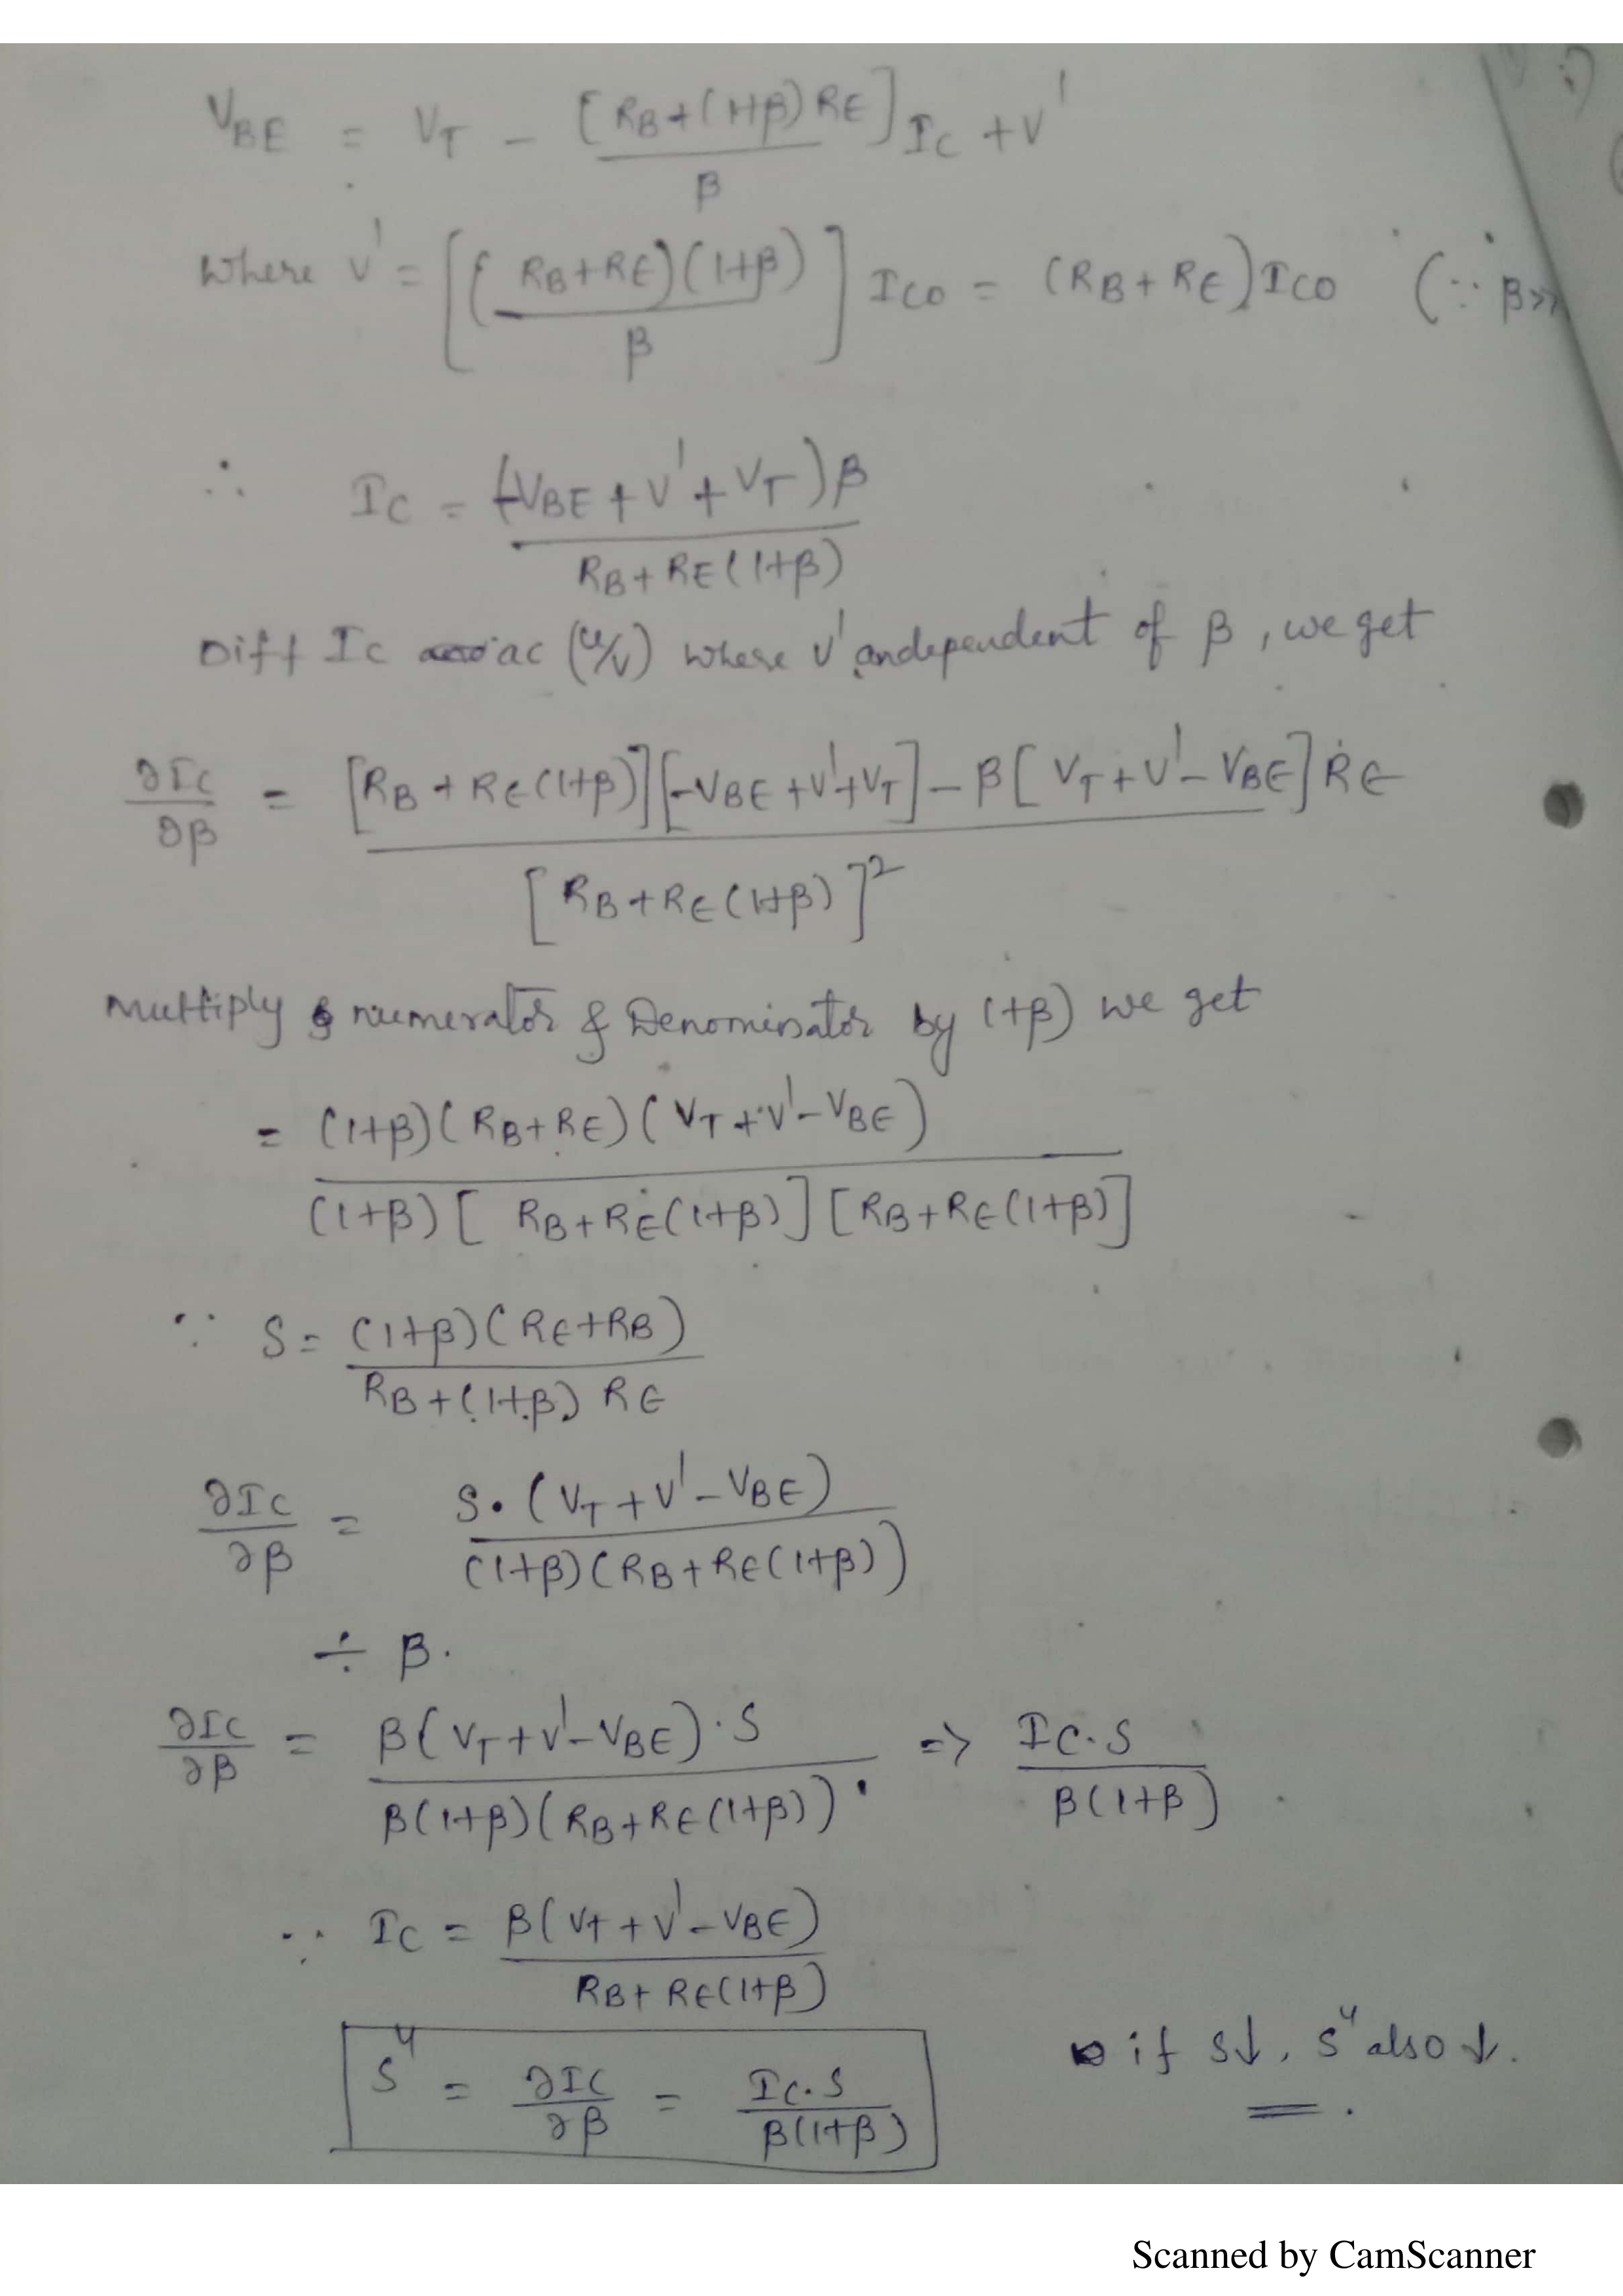 V_BE = V_T - [R_B+(1+β)R_E]/β I_C + V'
where V' = [((R_B+R_E)(1+β))/β] I_CO = (R_B+R_E)I_CO (∵ β>>
∴ I_C = (-V_BE+V'+V_T)β / R_B+R_E(1+β)
Diff I_C ac (u/v) where V' independent of β, we get
∂I_C/∂β = [R_B+R_E(1+β)][-V_BE+V'+V_T] - β[V_T+V'-V_BE]R_E / [R_B+R_E(1+β)]²
Multiply numerator & Denominator by (1+β) we get
= (1+β)(R_B+R_E)(V_T+V'-V_BE) / (1+β)[R_B+R_E(1+β)][R_B+R_E(1+β)]
∵ S = (1+β)(R_E+R_B) / R_B+(1+β)R_E
∂I_C/∂β = S·(V_T+V'-V_BE) / (1+β)(R_B+R_E(1+β))
÷ β.
∂I_C/∂β = β(V_T+V'-V_BE)·S / β(1+β)(R_B+R_E(1+β)) => I_C·S / β(1+β)
∵ I_C = β(V_T+V'-V_BE) / R_B+R_E(1+β)
S'' = ∂I_C/∂β = I_C·S / β(1+β) if S↓, S'' also ↓.
Scanned by CamScanner